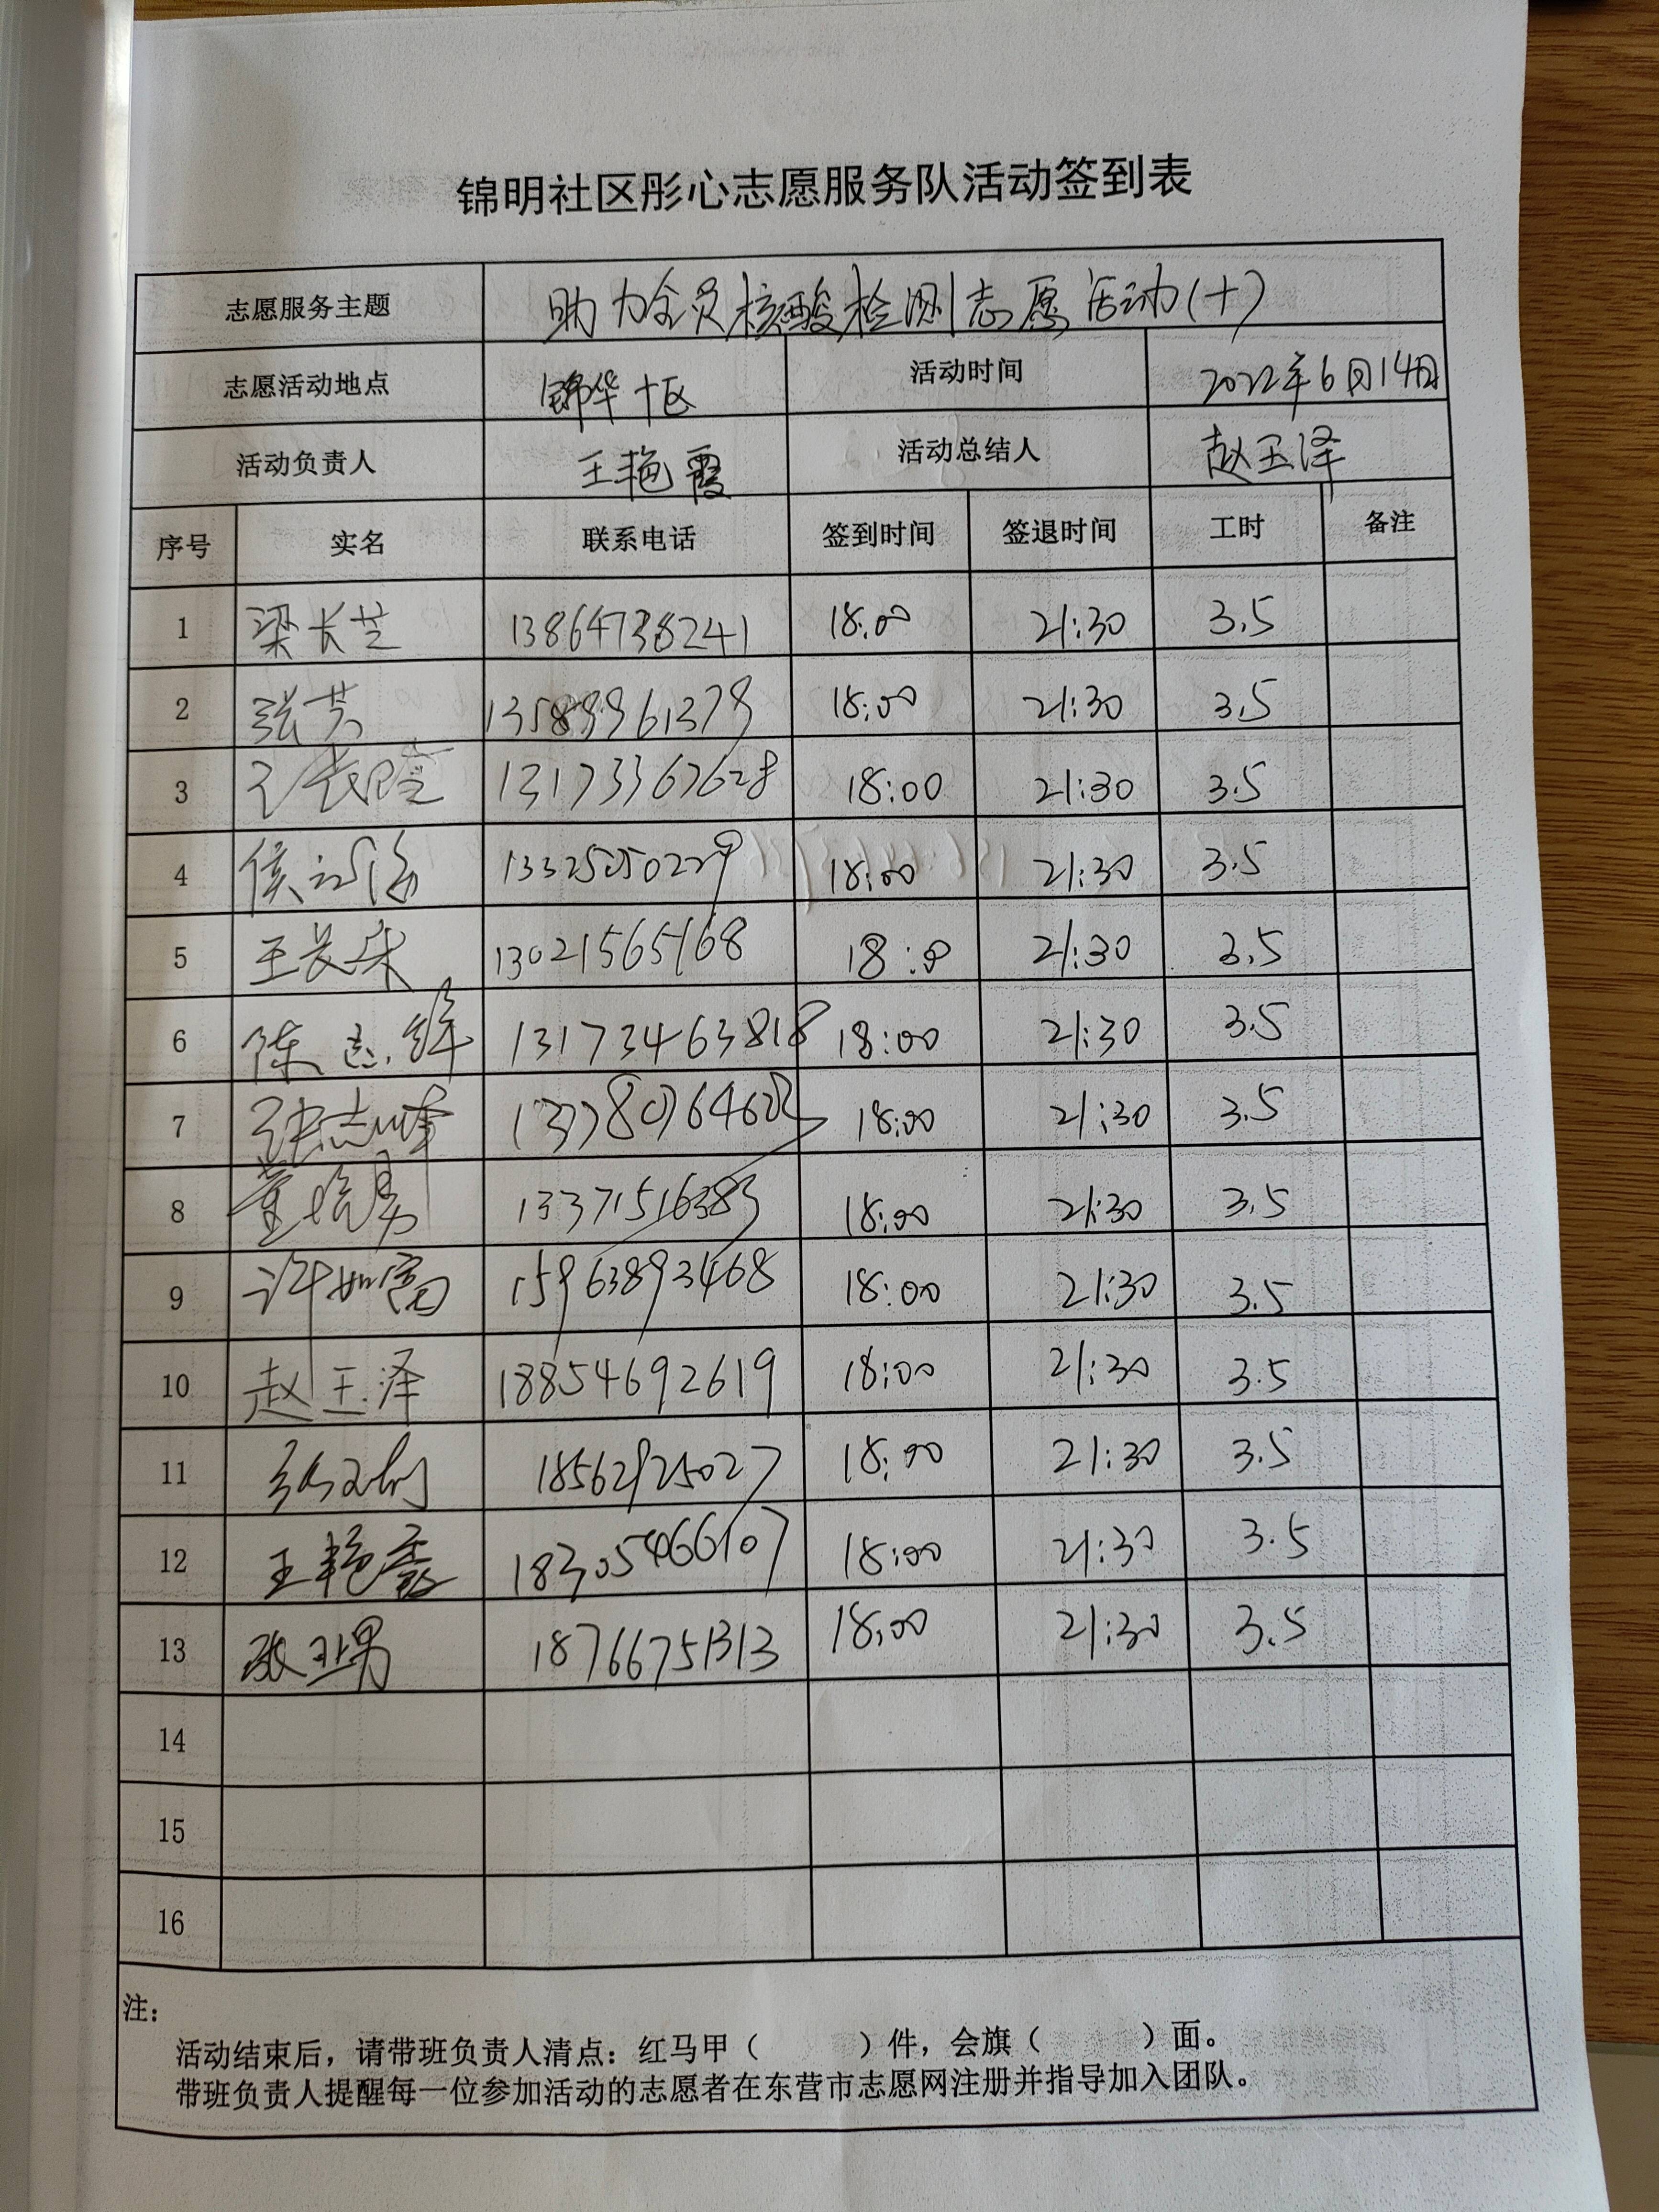 锦明社区彤心志愿服务队活动签到表
志愿服务主题 助力全员核酸检测志愿活动(十)
志愿活动地点 锦华十区 活动时间 2022年6月14日
活动负责人 王艳霞 活动总结人 赵玉泽
序号 实名 联系电话 签到时间 签退时间 工时 备注
1 梁长芝 13864738241 18:00 21:30 3.5
2 张芳 18:00 21:30 3.5
3 13173367628 18:00 21:30 3.5
4 18:00 21:30 3.5
5 13021565168 21:30 3.5
6 13173463818 18:00 21:30 3.5
7 张志峰 18:00 21:30 3.5
8 13371516383 18:00 21:30 3.5
9 许如富 15963893468 18:00 21:30 3.5
10 赵玉泽 18854692619 18:00 21:30 3.5
11 18562925027 18:00 21:30 3.5
12 王艳霞 18305466107 18:00 21:30 3.5
13 张亚男 18766751313 18:00 21:30 3.5
14
15
16
注:
活动结束后，请带班负责人清点：红马甲（ ）件，会旗（ ）面。
带班负责人提醒每一位参加活动的志愿者在东营市志愿网注册并指导加入团队。